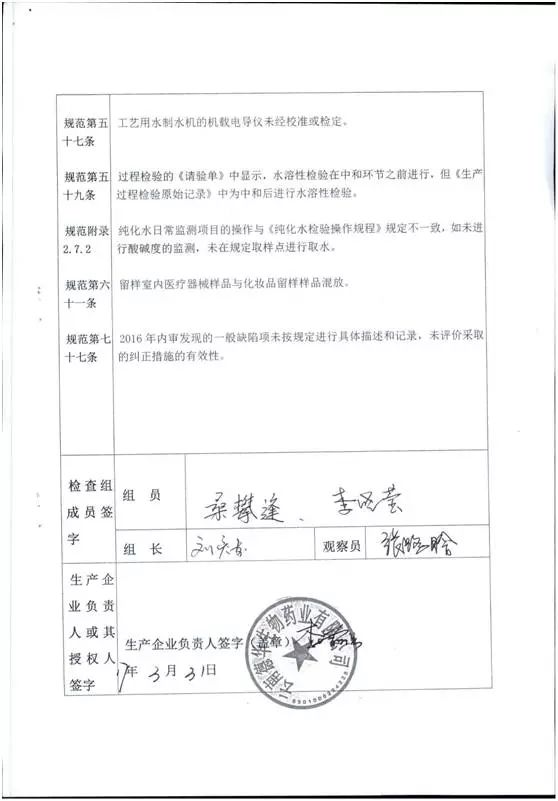 规范第五
十七条
工艺用水制水机的机载电导仪未经校准或检定。
规范第五
十九条
过程检验的《请验单》中显示，水溶性检验在中和环节之前进行，但《生产
过程检验原始记录》中为中和后进行水溶性检验。
规范附录
2.7.2
纯化水日常监测项目的操作与《纯化水检验操作规程》规定不一致，如未进
行酸碱度的监测，未在规定取样点进行取水。
规范第六
十一条
留样室内医疗器械样品与化妆品留样样品混放。
规范第七
十七条
2016 年内审发现的一般缺陷项未按规定进行具体描述和记录，未评价采取
的纠正措施的有效性。
检查组
成员签
字
组 员
组 长
观察员
生产企
业负责
人或其
授权人
签字
生产企业负责人签字（盖章）
17年 3月 31日
云南德华生物药业有限公司